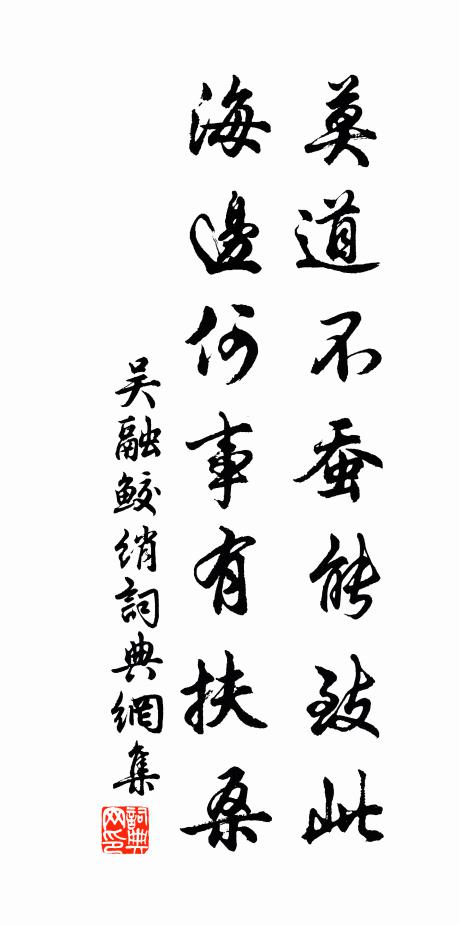 莫道不蚕能致此
海邊何事有扶桑
吴融鮫绡詞典網集
詞典网印